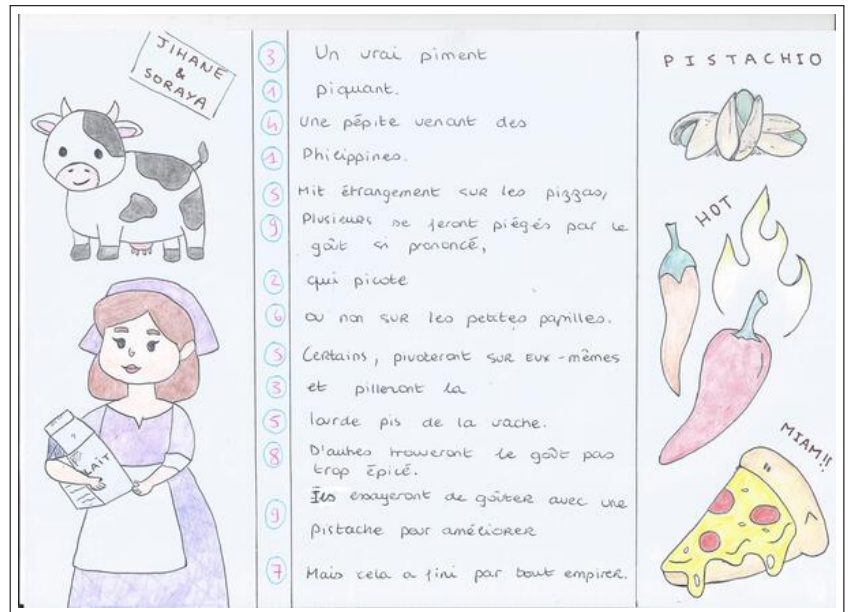 JIHANE
&
SORAYA
3 Un vrai piment
1 piquant.
4 une pépite venant des
1 Philippines.
5 Mit étrangement sur les pizzas,
9 Plusieurs se feront piégés par le
goût si prononcé,
2 qui picote
6 ou non sur les petites papilles.
5 Certains, pivoteront sur eux-mêmes
3 et pilleront la
5 lourde pis de la vache.
8 D'autres trouveront le goût pas
trop épicé.
9 Ils essayeront de goûter avec une
pistache pour améliorer
7 Mais cela a fini par tout empirer.
LAIT
PISTACHIO
HOT
MIAM!!